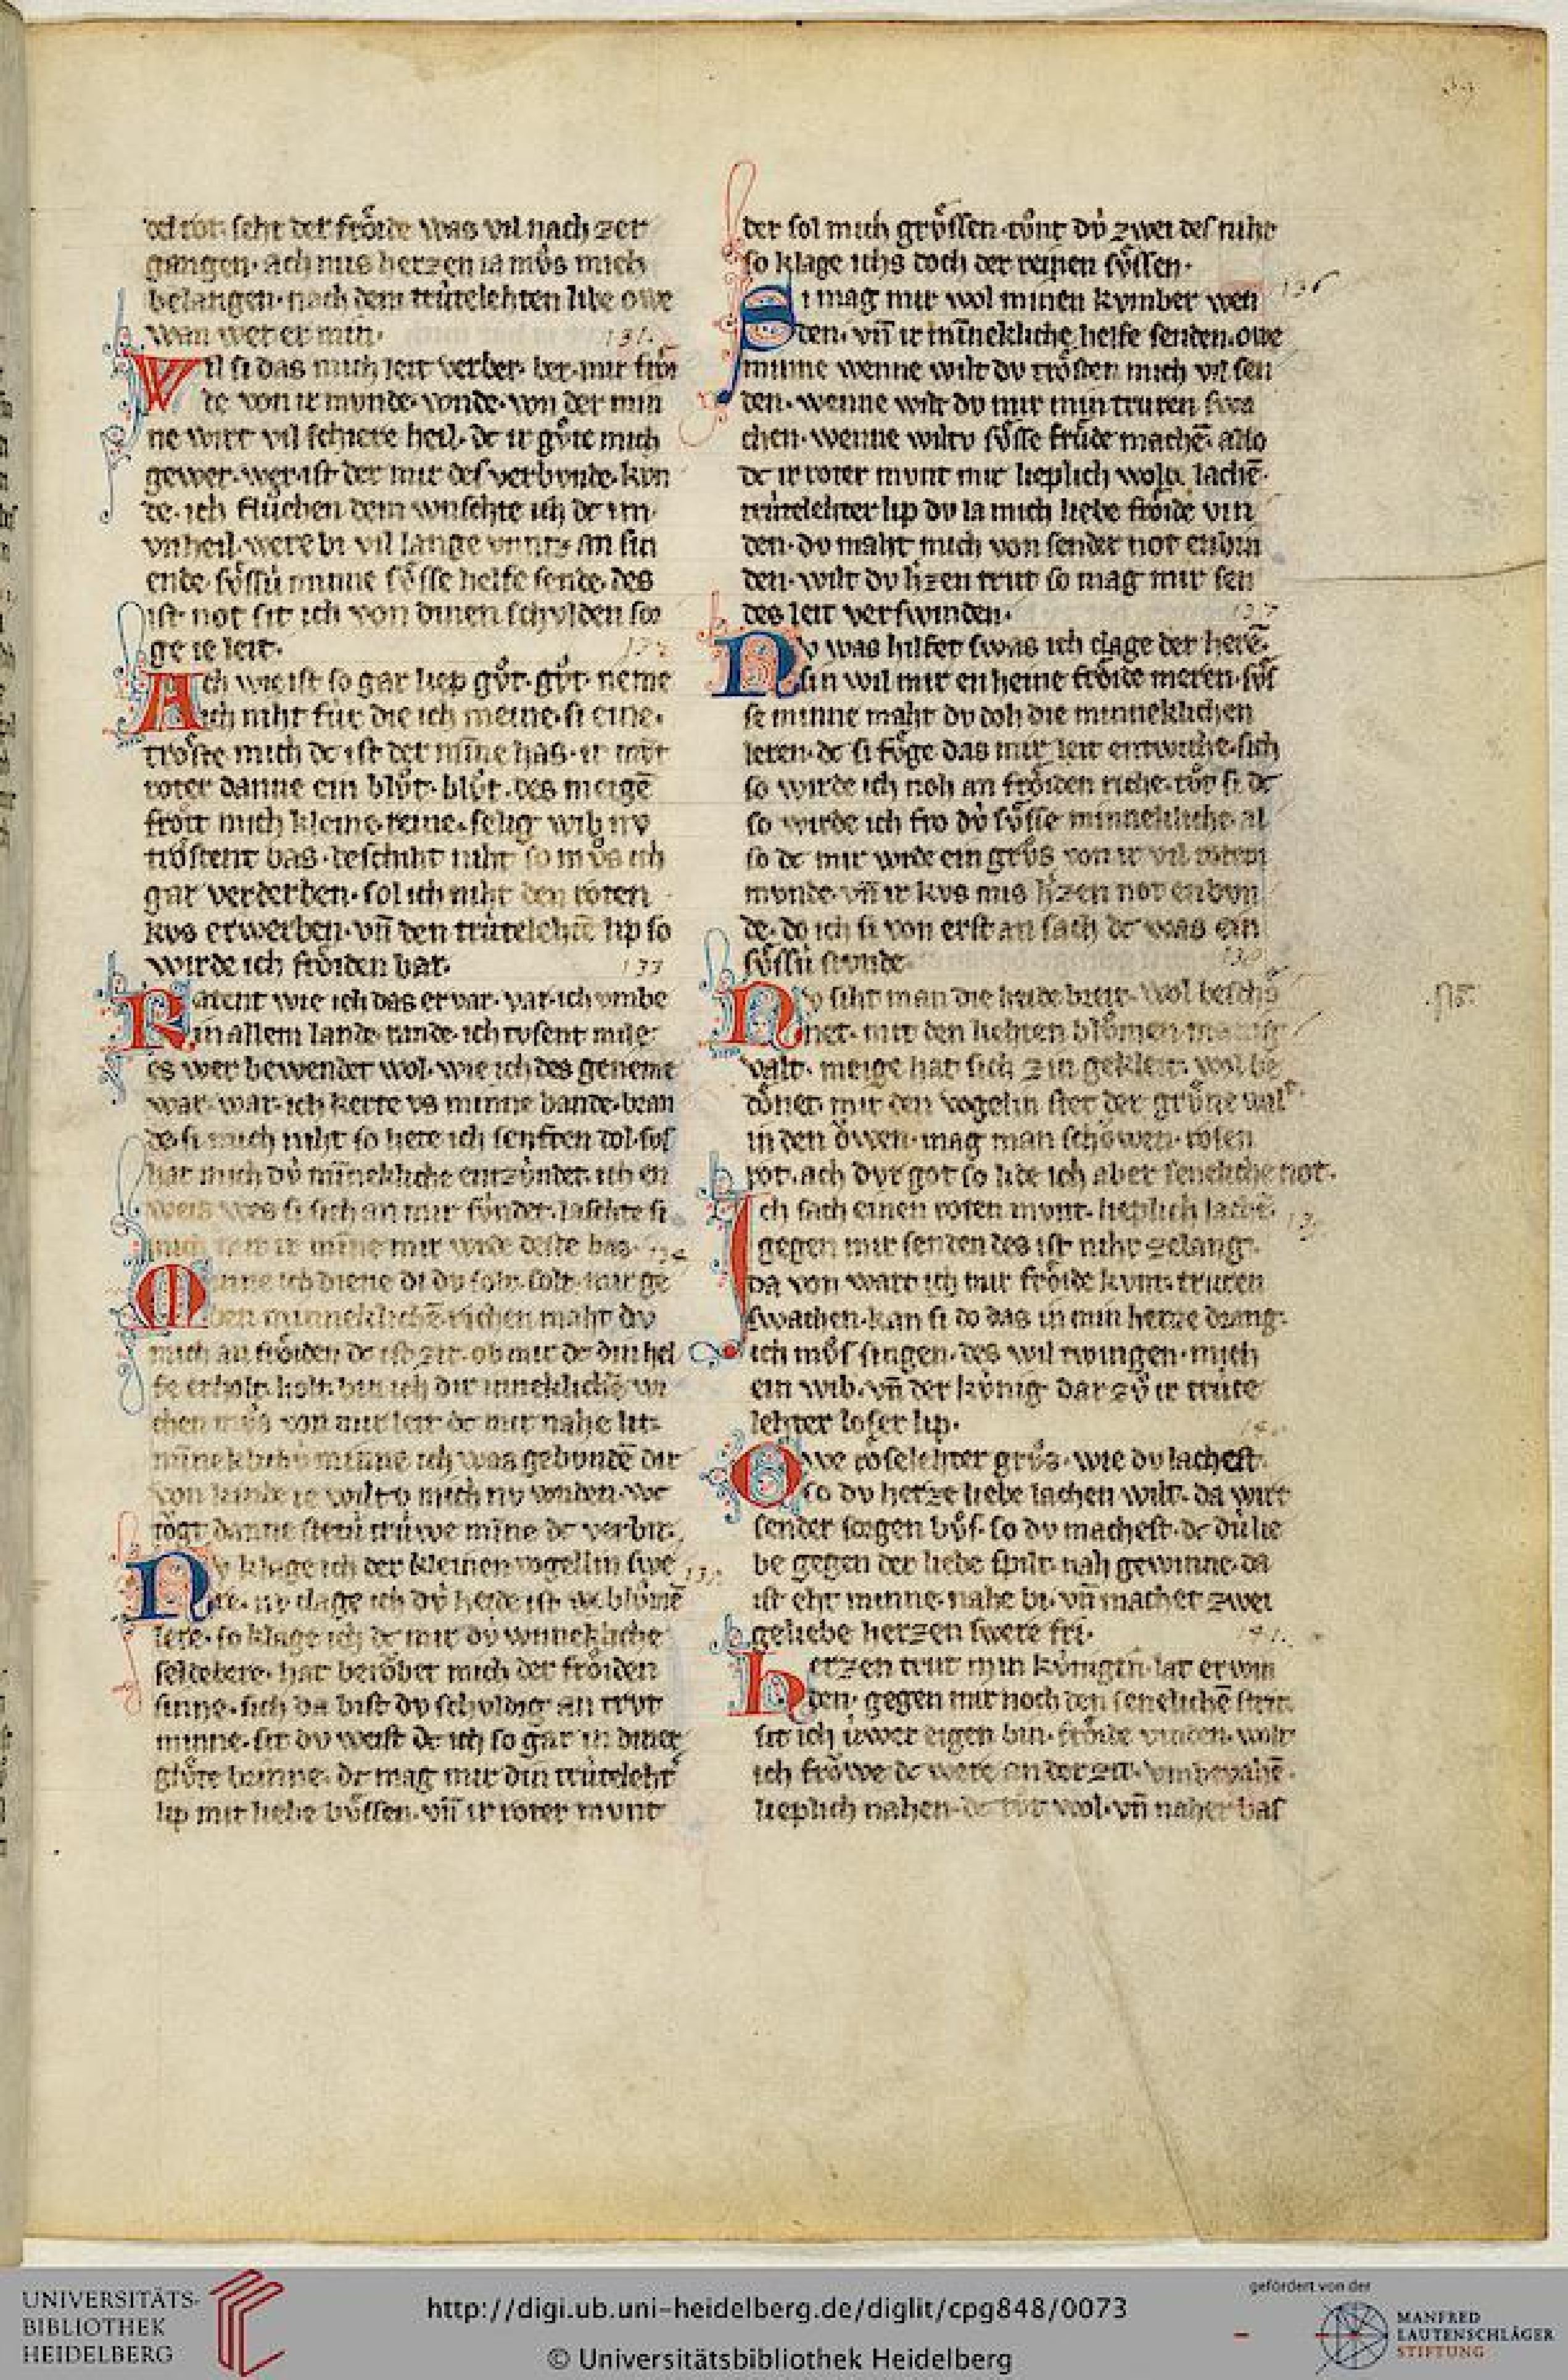 seht der froͤide was vil nach zer
gangen. ach mis herzen ia muͦs mich
belangen. nach dem trutelehten libe owe
wan wer er min.
131.
Wil si das mich leit verber. ber. mir froͤi
de von ir munde. vunde. von der min
ne wirt vil schiere heil. dc ir guͤte mich
gewer. wer. ist der mir des verbunde. kun
de. ich fluͦchen dem wnschte ich dc im.
vnheil. were bi vil lange vnntz an sin
ende. suͤssu minne suͤsse helfe sende. des
ist not sit ich von dinen schulden sor
ge ie leit.
132
Ach wie ist so gar liep guͦt. guͦt. neme
ich niht fur die ich meine. si eine.
troͤste mich dc ist der mine has. ir munt
roter danne ein bluͦt. bluͦt. des meigē
froͤit mich kleine. reine. selig wib nv
troͤstent bas. beschiht niht so muͦs ich
gar verderben. sol ich niht den roten
kus erwerben. vn̄ den trutelehtē lip so
wirde ich froͤiden bar.
133
Ratent wie ich das ervar. var. ich vmbe
in allem lande. rande. ich tusent mile.
es wer bewendet wol. wie ich des geneme
war. war. ich kerte vs minne bande. bran
de. si mich niht so hete ich senften dol. sus
hat mich du minekliche entzundet. ich en
weis wes si sich an mir sundet. laschte si
mich mit ir mine mir wrde deste bas.
134
Minne ich diene dir du solt. solt. mir ge
ben minneklichē richen maht du
mich an froͤiden dc ist zit. ob mir dc din hel
fe erholt. holt. bin ich dir inneklichē wi
chen muͦs von mir leit dc mir nahe lit.
minneklichu minne ich was gebundē dir
von kinde ie wiltu mich nv
danne stetu truwe mine dc
135
Nv klage ich der kleinen vogellin swe
re. nv clage ich du heide ist bluͦmē
lere. so klage ich dc mir du wnnekliche
seldebere. hat beroͮbet mich der froͤiden
sinne. sich da bist du schuldig an trut
minne. sit du weist dc ich so gar in diner
gluͤte brinne. dc mag mir din trutelehtͬ
lip mit liebe buͤssen. vn̄ ir roter munt
der sol mich gruͤssen. tuͦnt du zwei des niht
so klage ichs doch der reinen suͤssen.
136
Si mag mir wol minen kumber wen
den. vn̄ ir minnekliche helfe senden. owe
minne wenne wilt du troͤsten mich vil sen
den. wenne wilt du mir min truren swa
chen. wenne wiltu suͤsse fruͤde machē. also
dc ir roter munt mir lieplich lachē.
trutelehter lip du la mich liebe froͤide vin
den. du maht mich von sender not enbin
den. wilt du h̄zen trut so mag mir sen
des leit verswinden.
137
Nv was hilfet swas ich clage der herē.
sin wil mir en heine froͤide meren. suͤs
se minne maht du doh die minneklichen
leren. dc si fuͤge das mir leit entwiche. sich
so wirde ich noh an froͤiden riche. tuͦt si dc
so wirde ich fro du suͤsse minnekliche. al
so dc mir wrde ein gruͦs von ir vil rotem
munde. vn̄ ir kus mis h̄zen not enbun
de. do ich si von erst an sach dc was ein
suͤssu stunde.
138
Nv siht man die heide breit. wol beschoͤ
net. mit den liehten bluͦmen. manig
valt. meige hat sich zin gekleit. wol be
doͤnet. mit den vogelin stet der gruͤne walt.
in den oͮwen. mag man schoͮwen. rosen
rot. ach dur got so lide ich aber senekliche not.
139
Ich sach einen rosen munt. lieplich lachē.
gegen mir senden des ist niht zelang.
da von wart ich mir froͤide kunt. truren
swachen. kan si do das in min herze drang.
ich muͦs singen. des wil twingen. mich
ein wib. vn̄ der kunig dar zuͦ ir trute
lehter loser lip.
140.
Owe roͤselehter gruͦs. wie du lachest.
so du herze liebe lachen wilt. da wirt
sender sorgen buͦs. so du machest. dc du lie
be gegen der liebe spilt. nah gewinne. da
ist eht minne. nahe bi. vn̄ machet zwei
geliebe herzen swere fri.
141.
Herzen trut min kunigin̄. lat erwin
den. gegen mir noch den senelichē strit.
sit ich uwer eigen bin. froͤide vinden. wolt
ich froͮwe dc were an der zit. vmbevahē.
lieplich nahen. dc tuͦt wol. vn̄ naher bas
UNIVERSITÄTS-
BIBLIOTHEK
HEIDELBERG
http://digi.ub.uni-heidelberg.de/diglit/cpg848/0073
© Universitätsbibliothek Heidelberg
gefördert von der
MANFRED
LAUTENSCHLÄGER
STIFTUNG